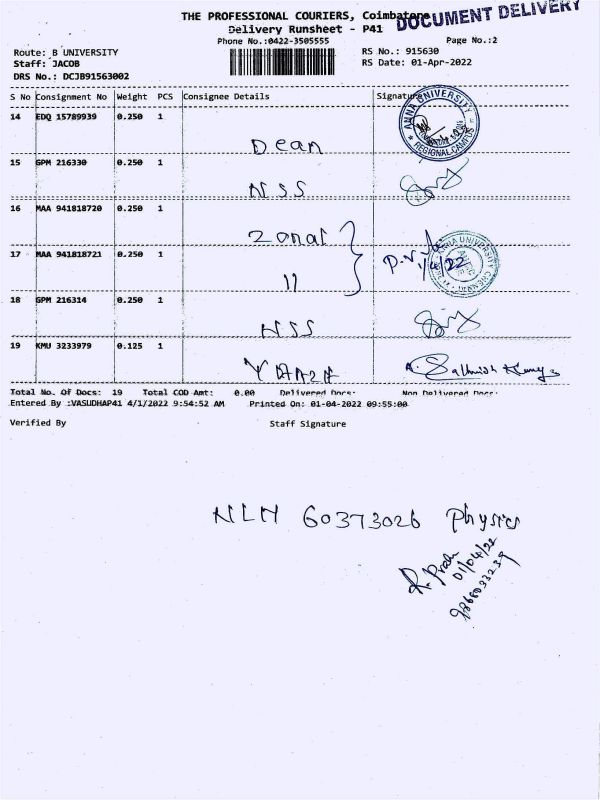 THE PROFESSIONAL COURIERS, Coimbatore
DOCUMENT DELIVERY
Delivery Runsheet - P41
Phone No.:0422-3505555
Page No.:2
Route: B UNIVERSITY
RS No.: 915630
Staff: JACOB
RS Date: 01-Apr-2022
DRS No.: DCJB91563002
S No Consignment No Weight PCS Consignee Details Signature
14 EDQ 15789939 0.250 1
Dean
ANNA UNIVERSITY
REGIONAL CAMPUS
15 GPM 216330 0.250 1
NSS
16 MAA 941818720 0.250 1
Zonal
17 MAA 941818721 0.250 1
11
1/4/22
ANNA UNIVERSITY CHENNAI
18 GPM 216314 0.250 1
NSS
19 KMU 3233979 0.125 1
Total No. Of Docs: 19 Total COD Amt: 0.00 Delivered Docs: Non Delivered Docs:
Entered By :VASUDHAP41 4/1/2022 9:54:52 AM Printed On: 01-04-2022 09:55:00
Verified By Staff Signature
NLH 60373026 Physics
01/04/22